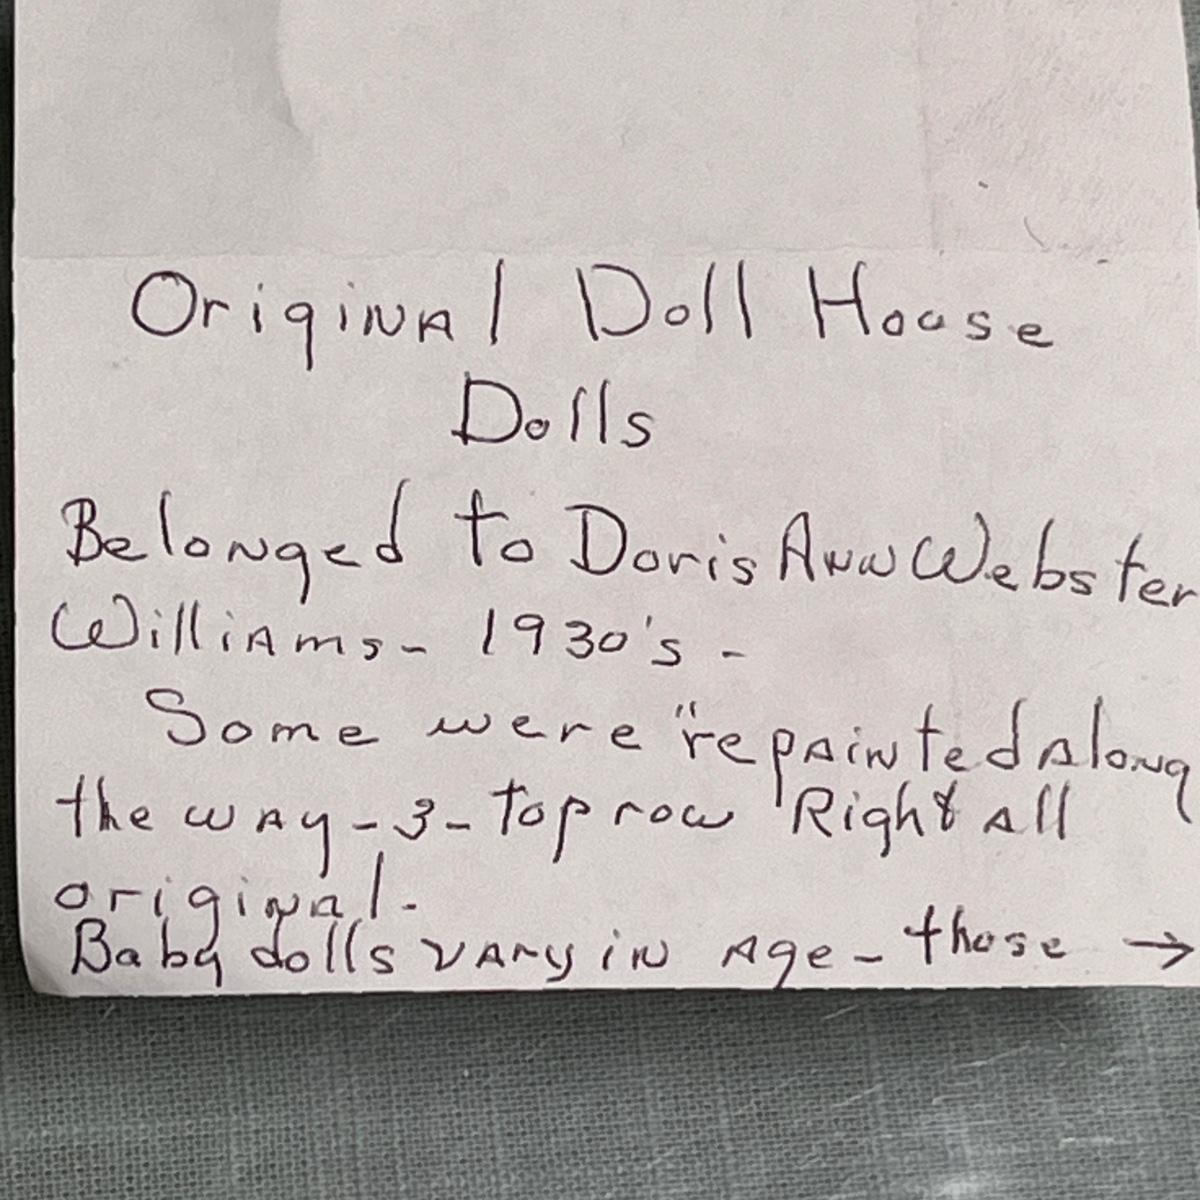 Original Doll House
Dolls
Belonged to Doris Ann Webster
Williams - 1930's -
Some were "repainted along
the way - 3 - top row Right all
original.
Baby dolls vary in age - those →